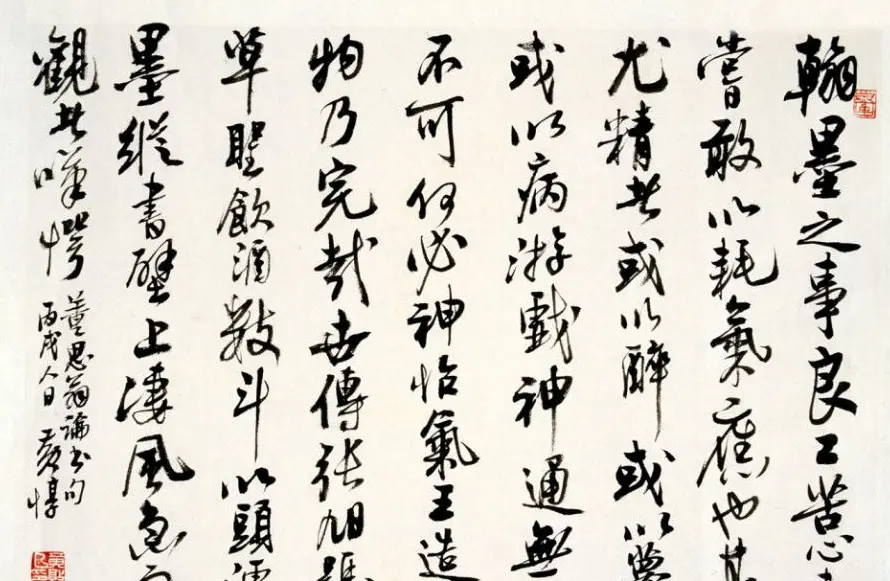 翰墨之事良工苦心
嘗敢以耗氣應也其
尤精者或以醉或以夢
或以病游戲神通無
不可何必神怡氣王造
物乃完哉世傳張旭號
草聖飲酒數斗以頭濡
墨縱書壁上淒風急
觀者嘆愕
董思翁論書句
丙戌人日 黃惇